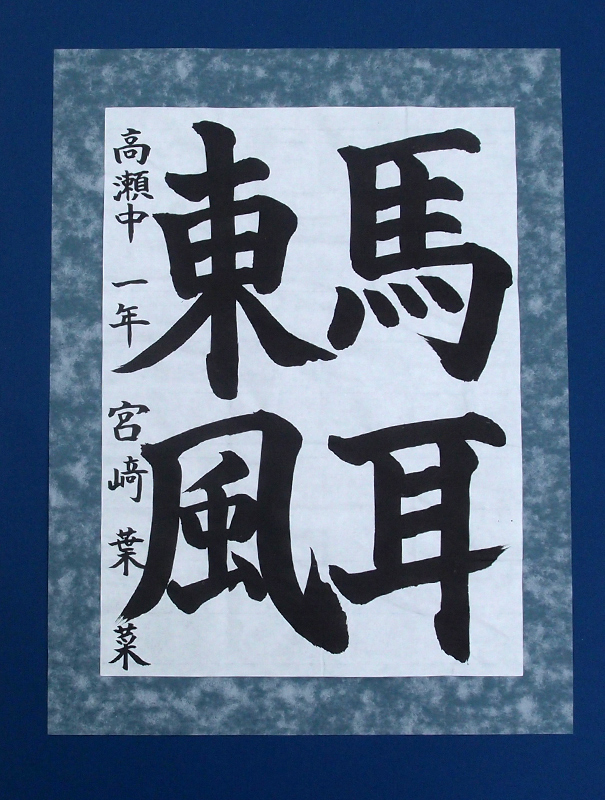 馬耳
東風
高瀬中 一年 宮﨑 葉菜